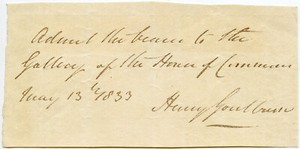 Admit the bearer to the
Gallery of the House of Commons
May 13th 1833
Henry Goulburn